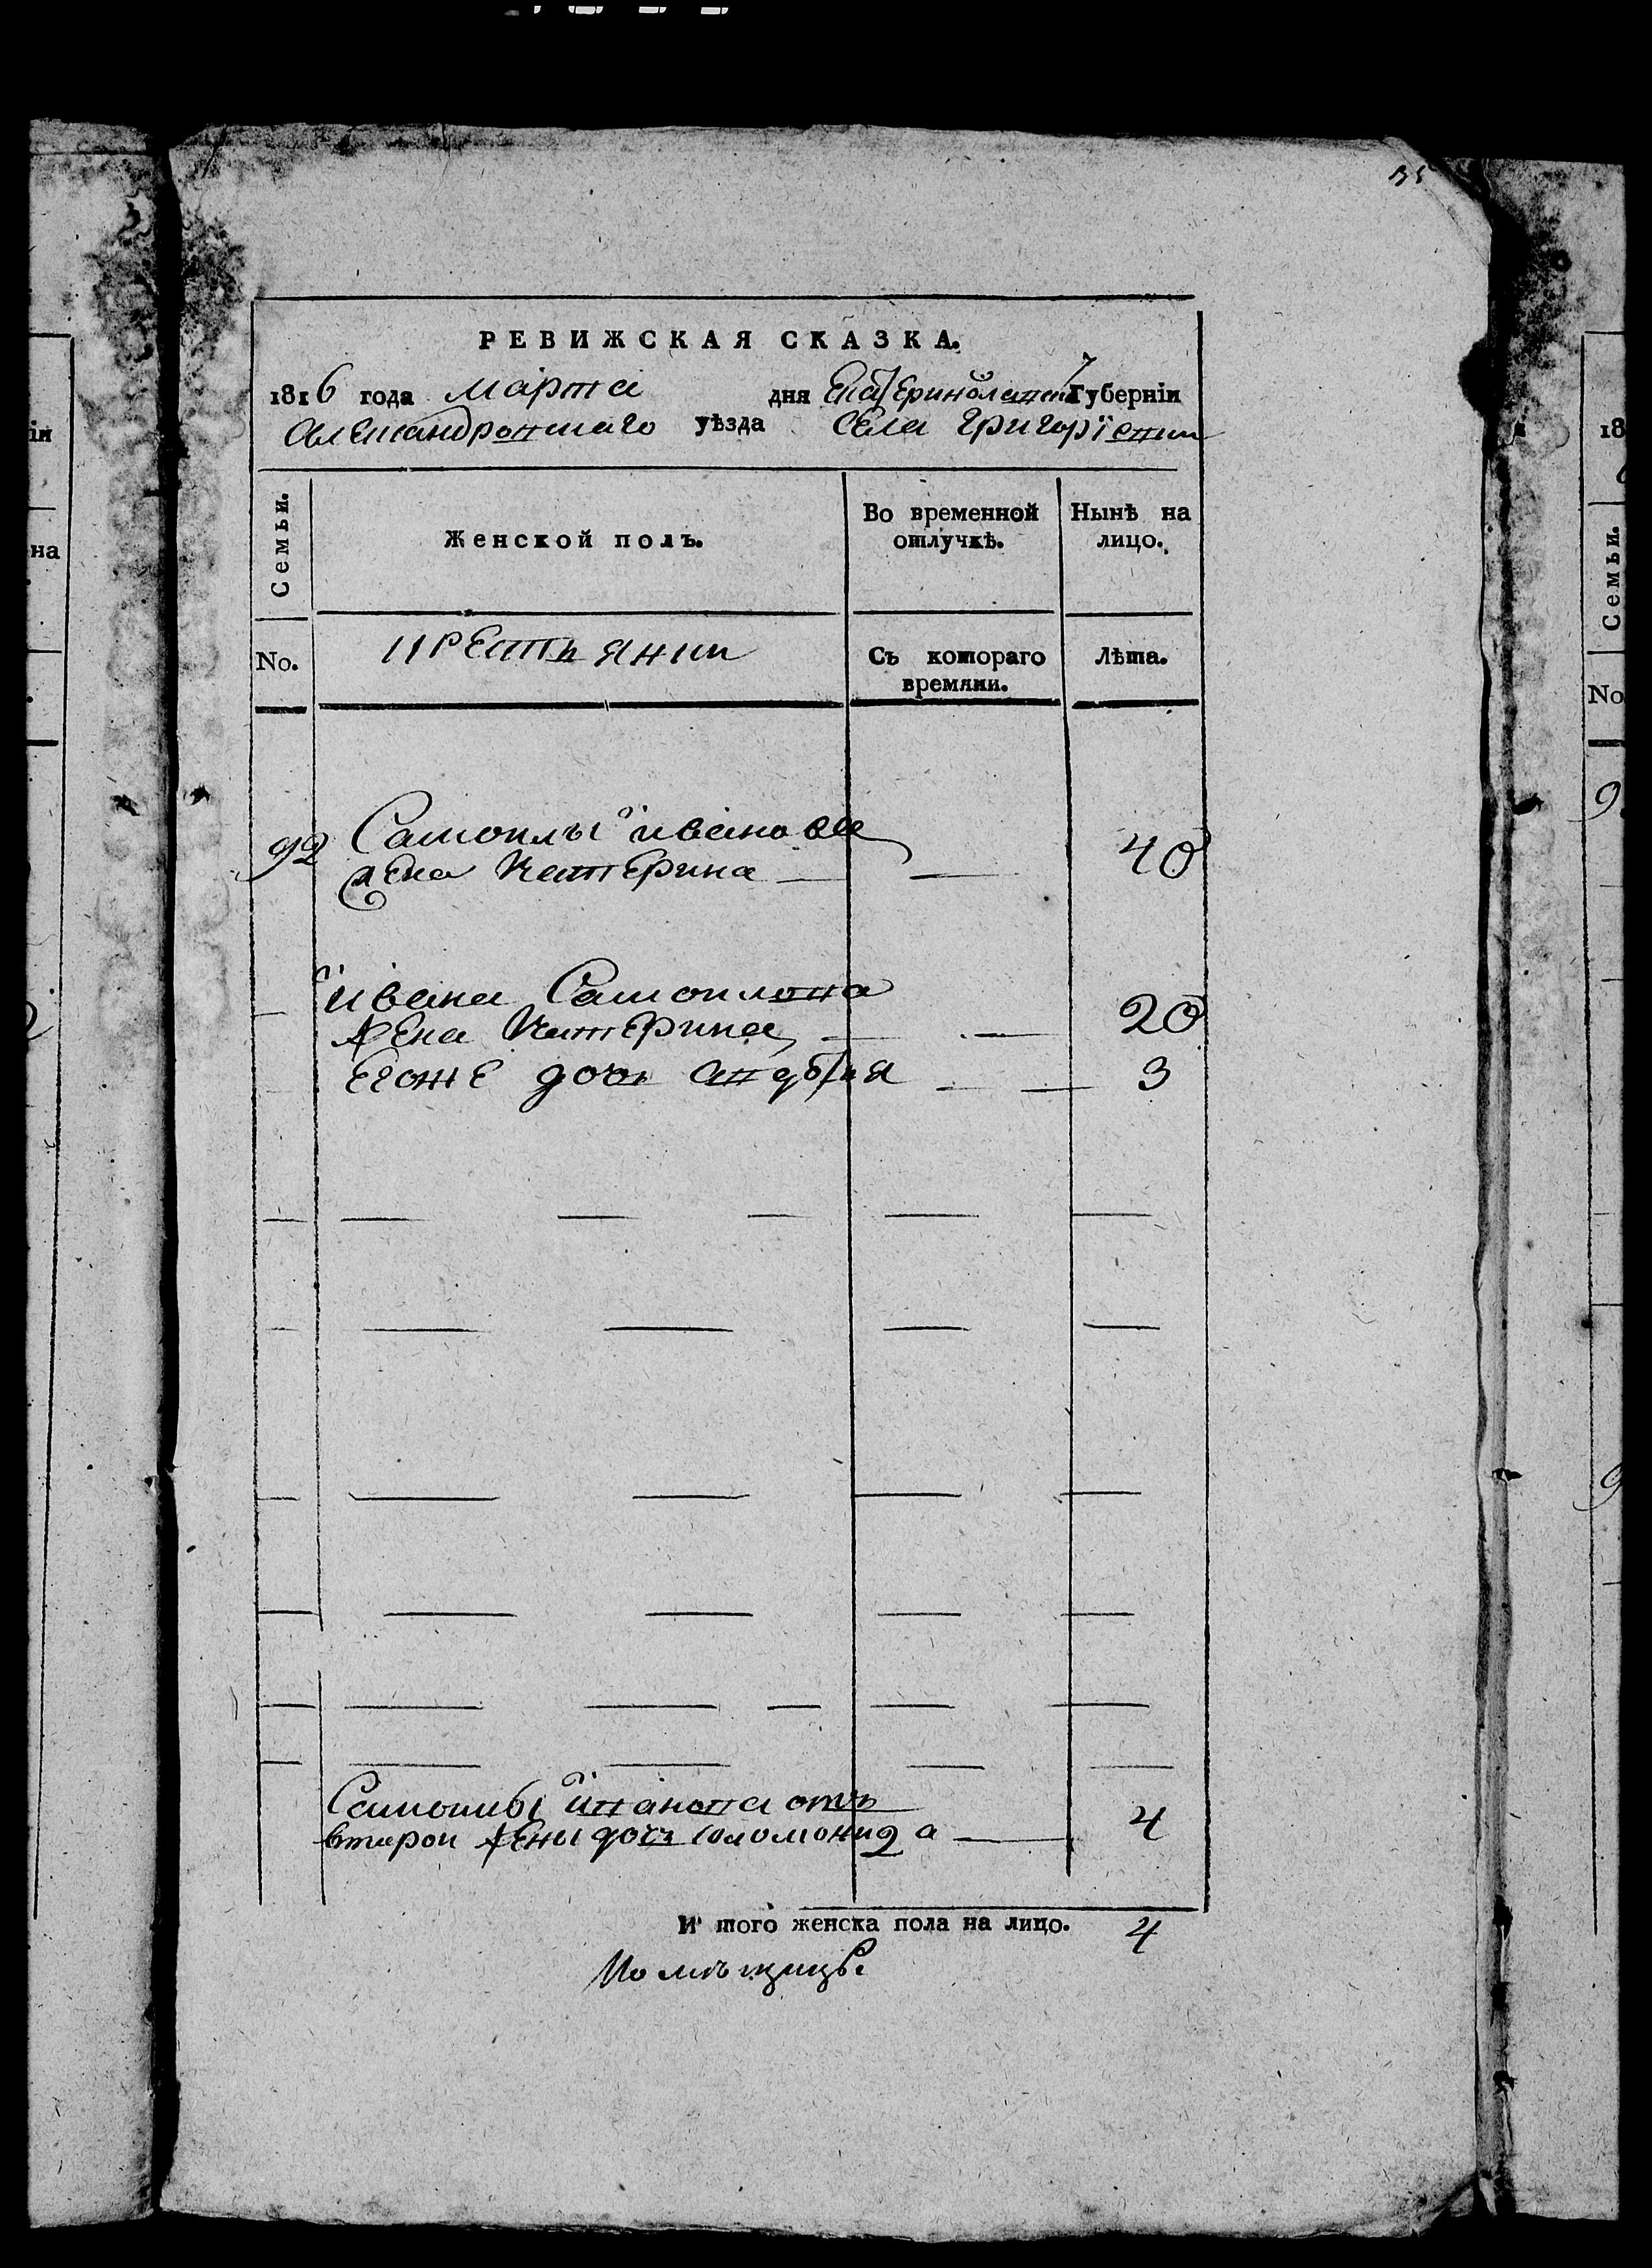 35
РЕВИЖСКАЯ СКАЗКА.
1816 года марта дня Екатеринославской Губерніи
Александровскаго уѣзда Села Григорїевки
Семьи.
Женской полъ.
Во временной отлучкѣ.
Нынѣ на лицо.
No.
крестьянки
Съ котораго времяни.
Лѣта.
92 Самойлы Иванова
жена Катерина — — 40
Ивана Самойлова
жена Катерина — — 20
Егоже дочь — — 3
Самойлы Иванова отъ
второй жены дочь соломонида — 4
И того женска пола на лицо. 4